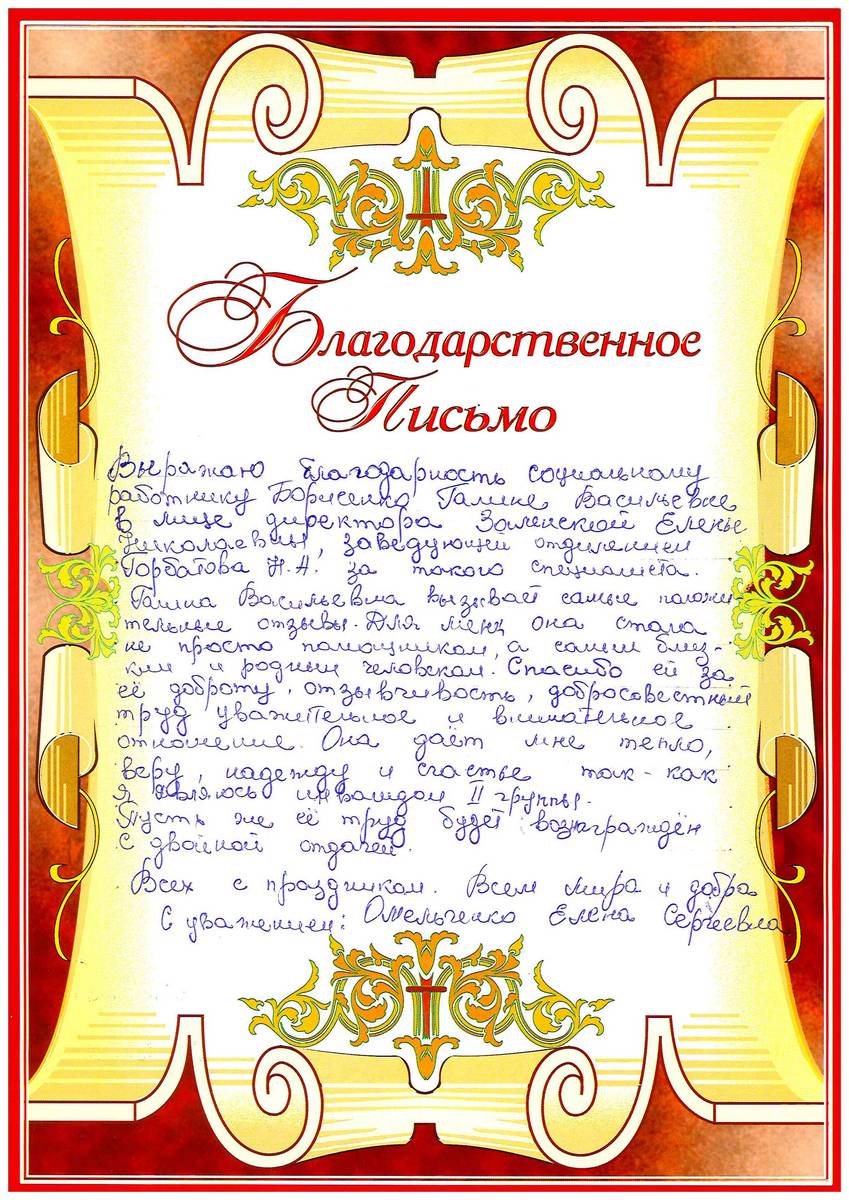 Благодарственное
Письмо
Выражаю благодарность социальному
работнику Борисенко Галине Васильевне
в лице директора Заленской Елены
Николаевны, заведующей отдилением
Горбатова Н.А. за такого специалиста.
Галина Васильевна вызывай самые положи-
тельные отзывы. Для меня она стала
не просто помощником, а самым близ-
ким и родным человеком. Спасибо ей за
её доброту, отзывчивость, добросовестный
труд уважительное и внимательное
отношение. Она даёт мне тепло,
веру, надежду и счастье так-как
я являюсь инвалидом II группы.
Пусть же её труд будет вознаграждён
с двойной отдачей.
Всех с праздником. Всем мира и добра
С уважением: Омельченко Елена Сергеевна